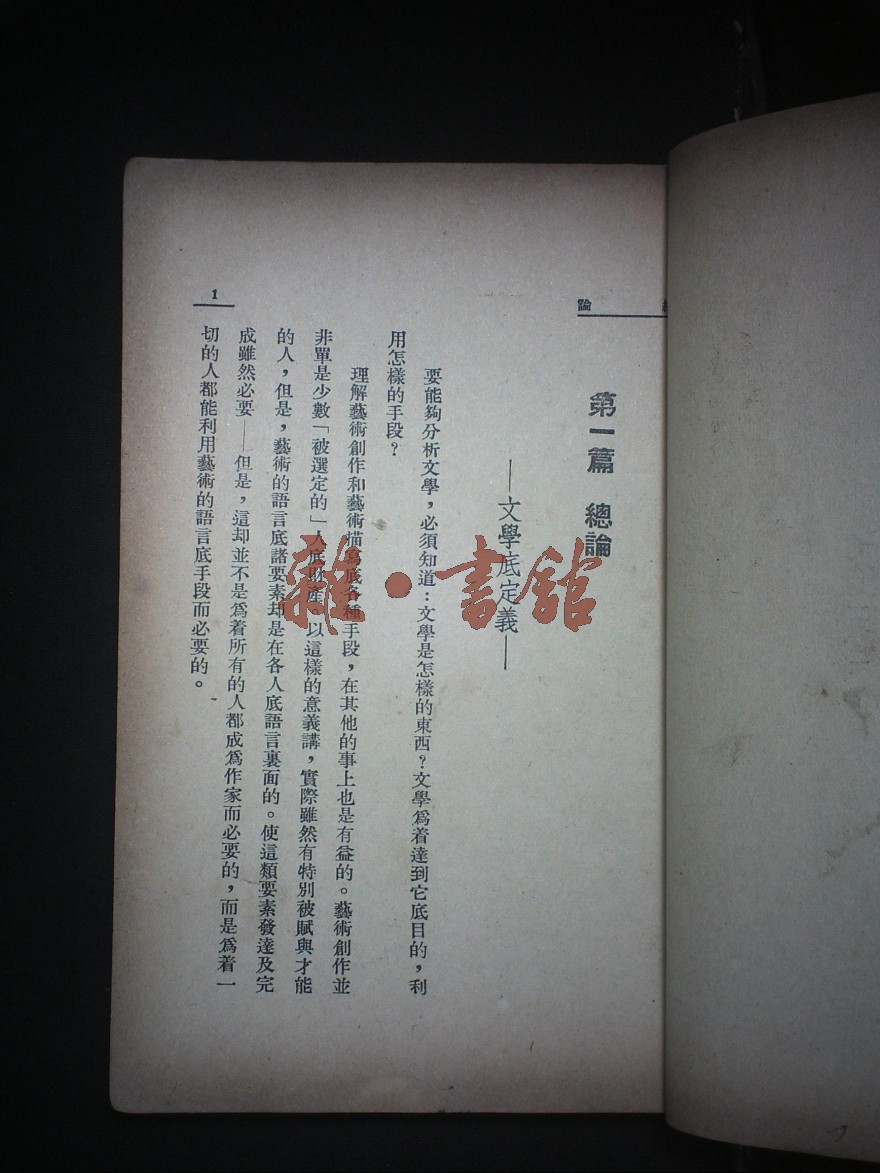 總論
第一篇 總論
—文學底定義—
要能夠分析文學，必須知道：文學是怎樣的東西？文學爲着達到它底目的，利
用怎樣的手段？
理解藝術創作和藝術描寫底各種手段，在其他的事上也是有益的。藝術創作並
非單是少數「被選定的」人底財產。以這樣的意義講，實際雖然有特別被賦與才能
的人，但是，藝術的語言底諸要素却是在各人底語言裏面的。使這類要素發達及完
成雖然必要——但是，這却並不是爲着所有的人都成爲作家而必要的，而是爲着一
切的人都能利用藝術的語言底手段而必要的。
1
雜·書館